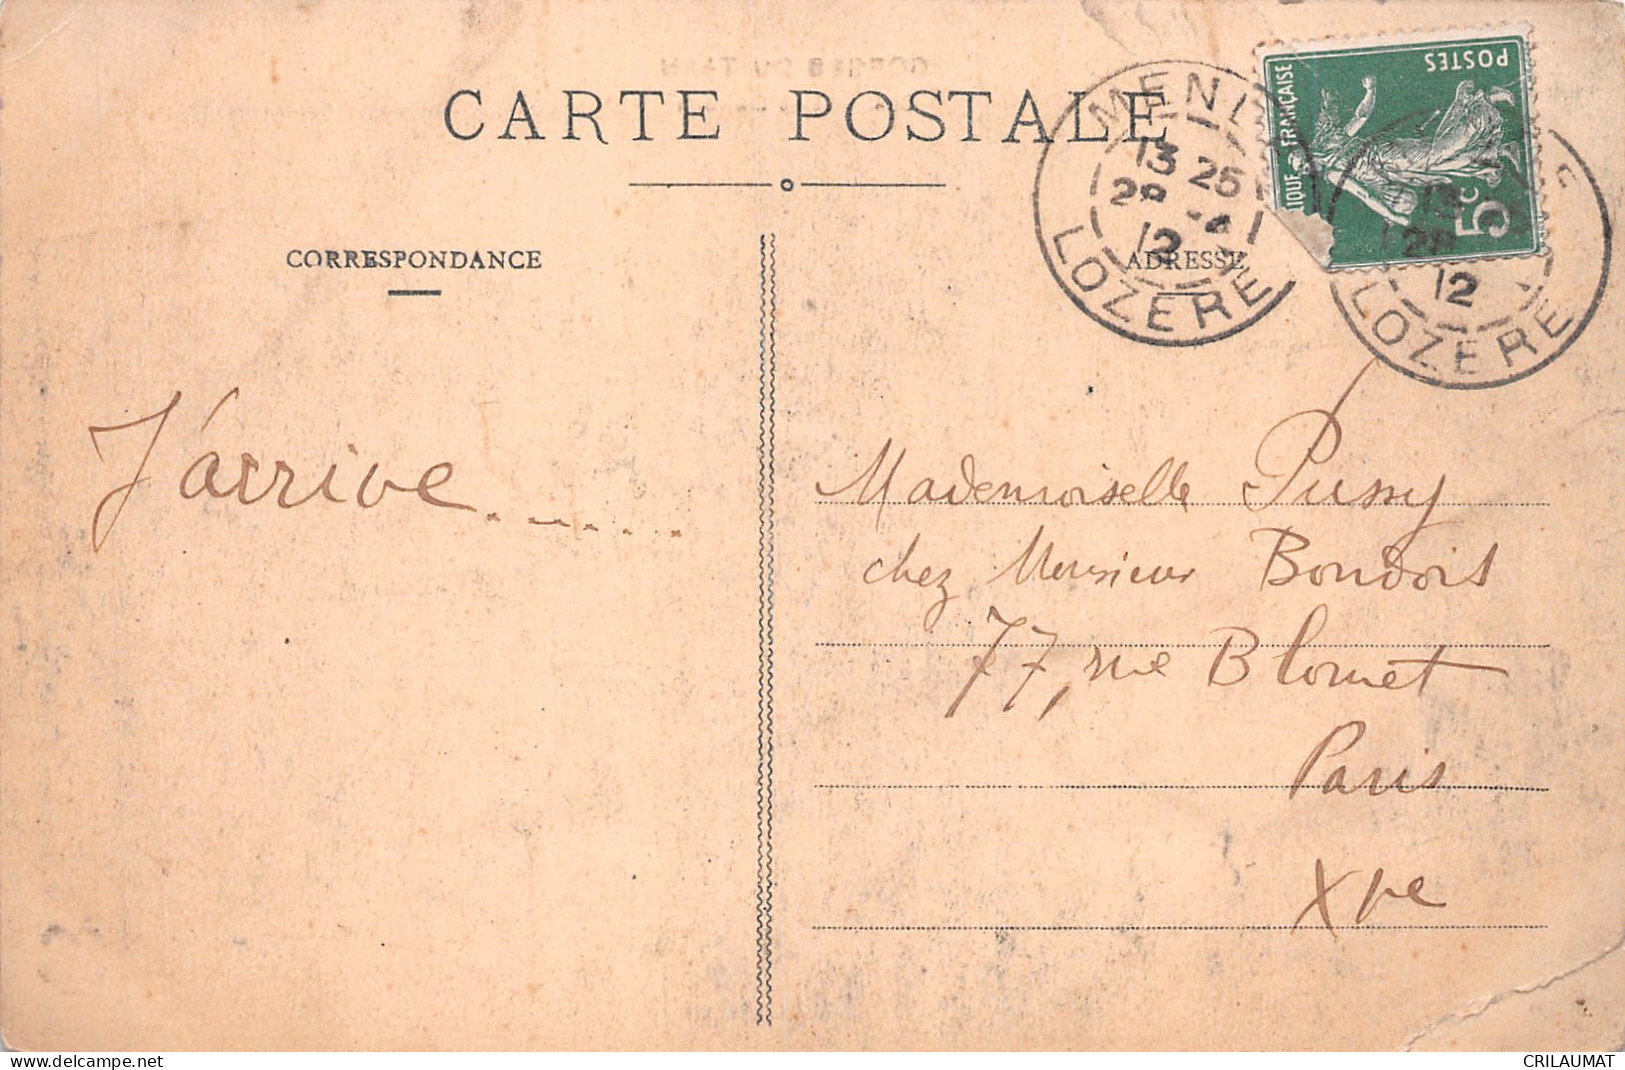 CARTE POSTALE
CORRESPONDANCE
ADRESSE
POSTES
FRANÇAISE
5c
MEN
13 25
28
12
LOZERE
13
28
12
LOZERE
J'arrive..........
Mademoiselle Pussy
chez Monsieur Bondois
77, rue Blomet
Paris
Xve
www.delcampe.net
CRILAUMAT